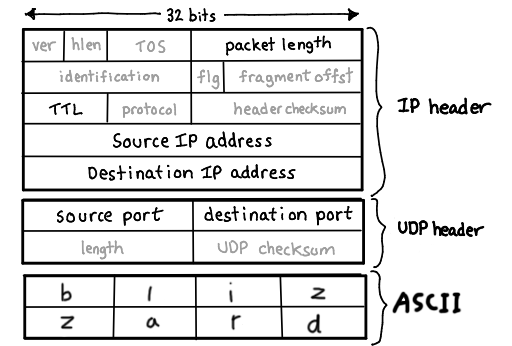 32 bits
ver hlen TOS packet length
identification flg fragment offst
TTL protocol header checksum
Source IP address
Destination IP address
IP header
source port destination port
length UDP checksum
UDP header
b l i z
z a r d
ASCII